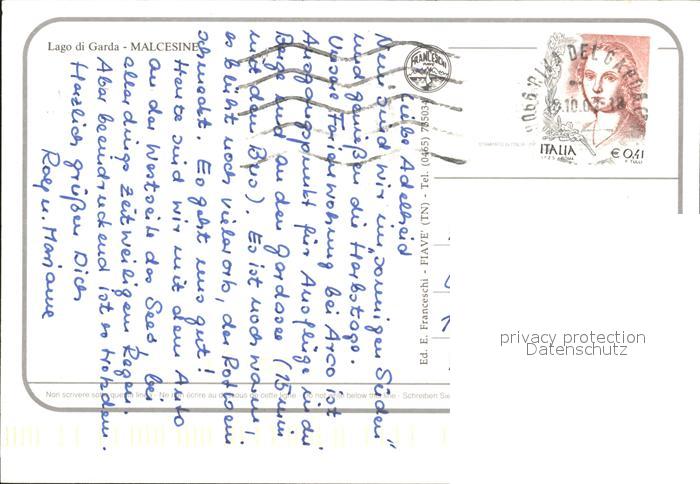 Lago di Garda - MALCESINE
Liebe Adelheid
Nun sind wir im "sonnigen Süden"
und genießen die Herbsttage.
Unsere Ferienwohnung bei Arco ist
Ausgangspunkt für Ausflüge in die
Berge und an den Gardasee (15 min
mit dem Bus). Es ist noch warm,
es blüht noch vielerorts, der Rotwein
schmeckt. Es geht uns gut!
Heute sind wir mit dem Auto
an der Westseite des Sees, bei
allerdings zeitweiligem Regen.
Aber beeindruckend ist es trotzdem.
Herzlich grüßen Dich
Rolf u. Marianne
FRANCESCHI
Ed. E. Franceschi - FIAVE' (TN) - Tel. (0465) 735034
RIVA DEL GARDA
ITALIA
€ 0,41
Non scrivere sotto questa linea - Ne rien écrire au dessous de cette ligne - Do not write below this line - Schreiben Sie
privacy protection
Datenschutz